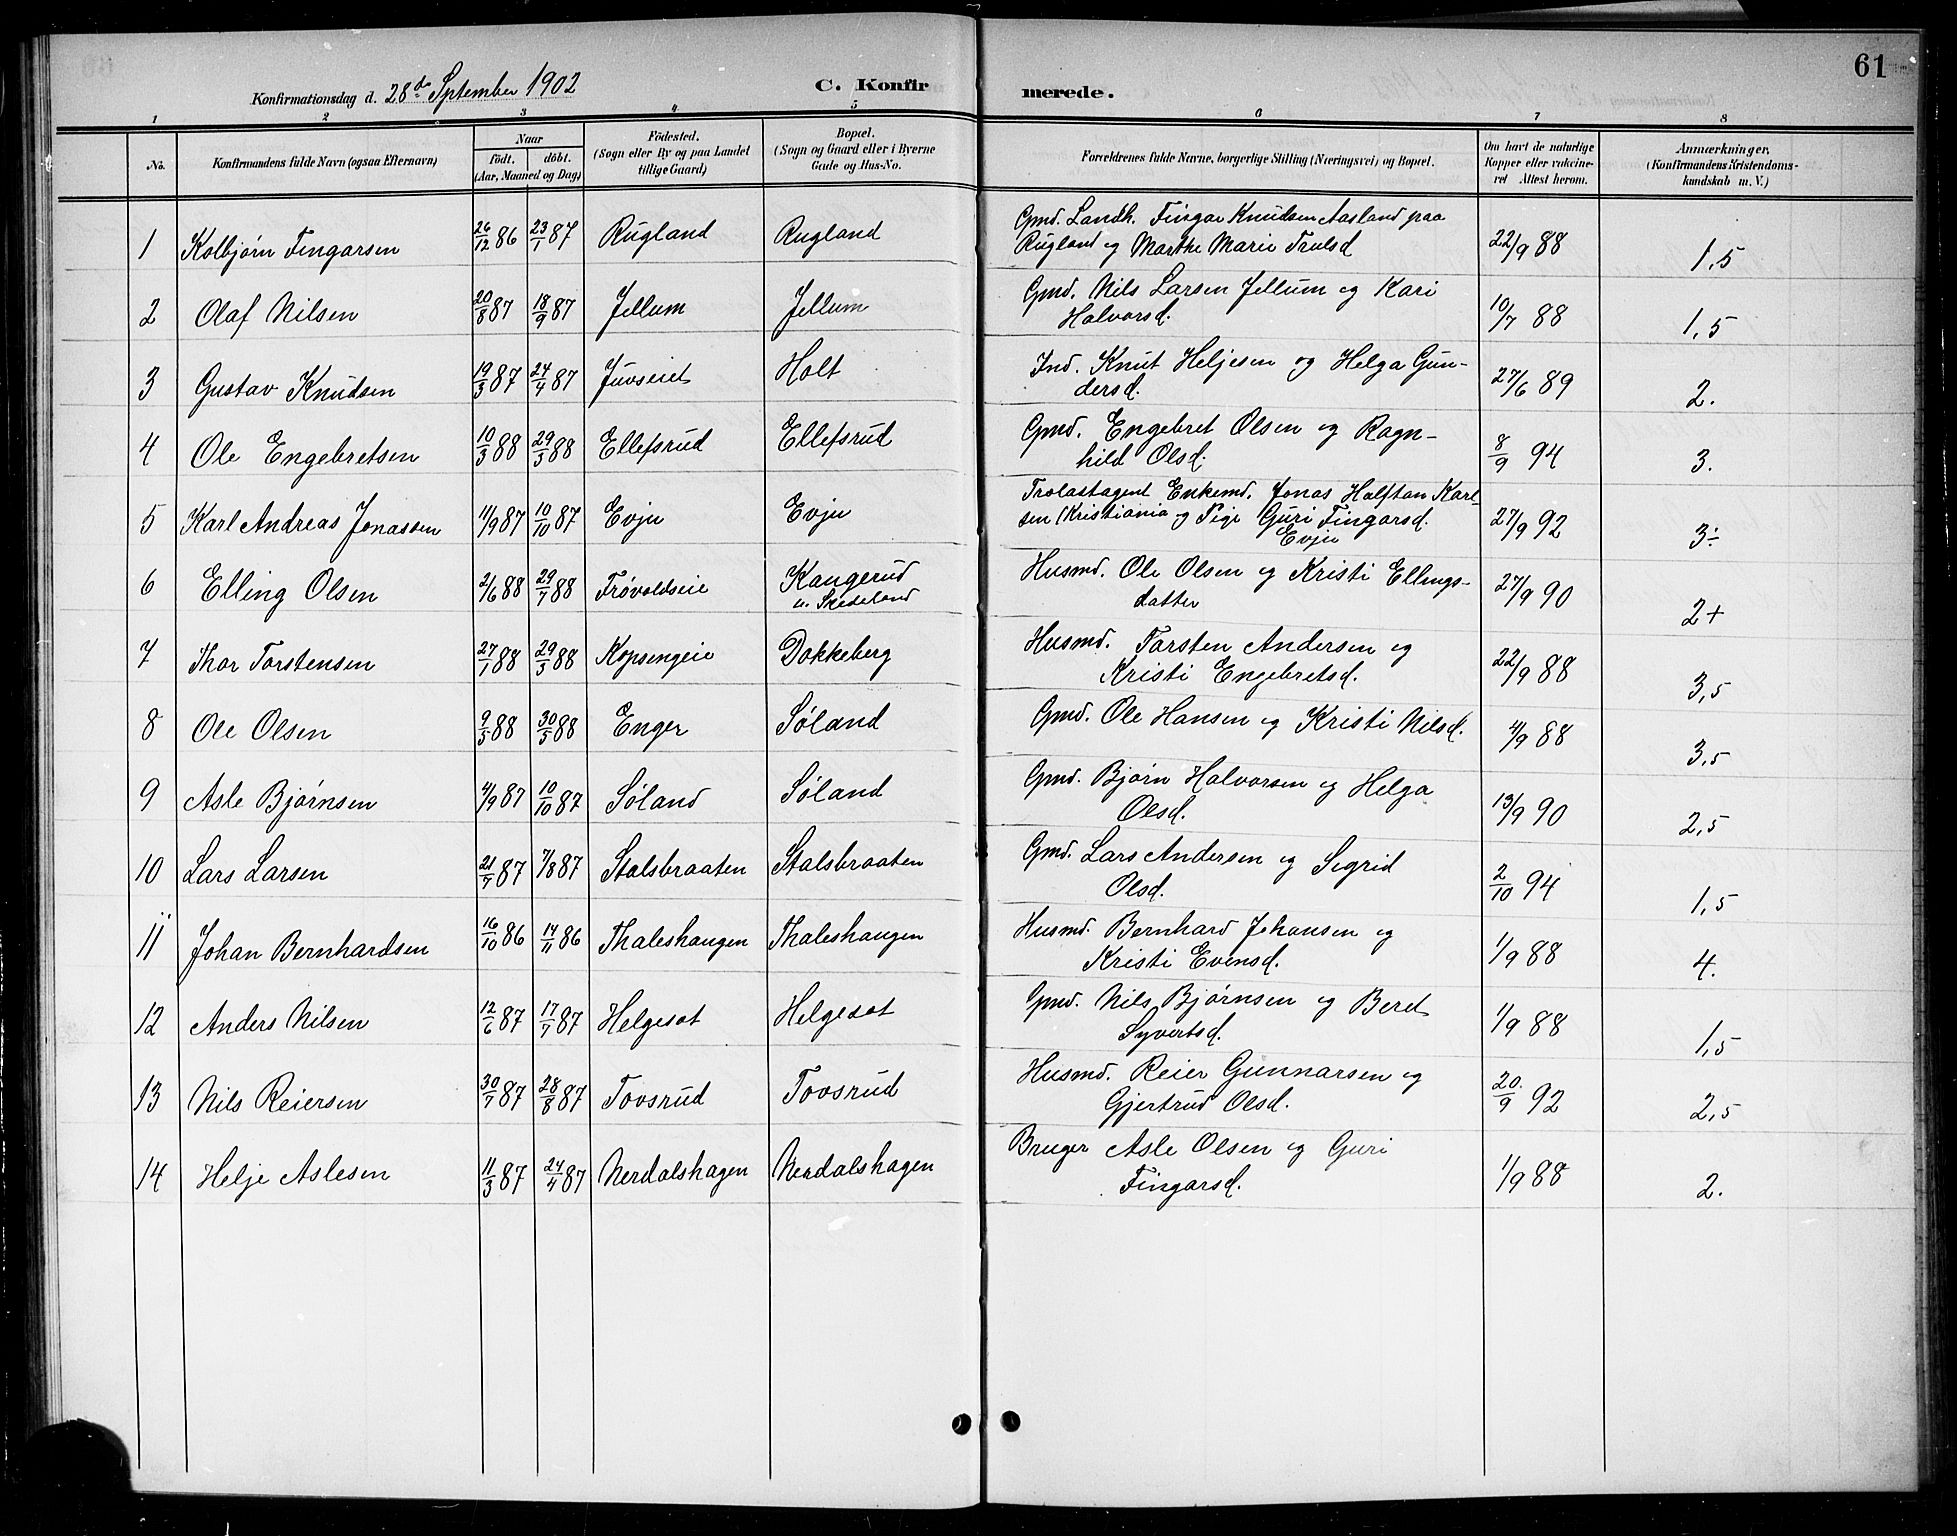 61
Konfirmationsdag d. 28de September 1902 C. Konfirmerede.
1 2 3 4 5 6 7 8
No. Konfirmandens fulde Navn (ogsaa Efternavn) Naar födt. döbt. (Aar, Maaned og Dag) Födested. (Sogn eller By og paa Landet tillige Gaard) Bopæl. (Sogn og Gaard eller i Byerne Gade og Hus-No. Forældrenes fulde Navne, borgerlige Stilling (Næringsvei) og Bopæl. Om havt de naturlige Kopper eller vakcineret Attest herom. Anmærkninger, (Konfirmandens Kristendomskundskab m. V.)
1 Kolbjørn Fingarsen 26/12 86 23/1 87 Rugland Rugland Gmd. Landh. Fingar Knudsen Aasland paa
Rugland og Marthe Marie Trulsd 22/9 88 1,5
2 Olaf Nilsen 20/8 87 18/9 87 Jellum Jellum Gmd. Nils Larsen Jellum og Kari
Halvorsd. 10/7 88 1,5
3 Gustav Knudsen 19/3 87 24/4 87 Juvseiet Holt Ind. Knut Heljesen og Helga Gun-
dersd. 27/6 89 2.
4 Ole Engebretsen 10/3 88 29/3 88 Ellefsrud Ellefsrud Gmd. Engebret Olsen og Ragn-
hild Olsd. 8/9 94 3.
5 Karl Andreas Jonassen 11/9 87 10/10 87 Evju Evju Enkemd. Jonas Halftan Karl-
sen Kristiania og Pige Guri Fingarsd.
Evju 27/9 92 3÷
6 Elling Olsen 2/6 88 29/7 88 Frøvoldseie Kangerud
u. Skedeland Husmd. Ole Olsen og Kristi Ellings-
datter 27/9 90 2+
7 Thor Torstensen 27/1 88 29/3 88 Kopsengeie Dokkeberg Husmd. Torsten Andersen og
Kristi Engebretsd. 22/9 88 3,5
8 Ole Olsen 9/5 88 30/5 88 Enger Søland Gmd. Ole Hansen og Kristi Nilsd. 4/9 88 3,5
9 Asle Bjørnsen 4/9 87 10/10 87 Søland Søland Gmd. Bjørn Halvorsen og Helga
Olsd. 13/9 90 2,5
10 Lars Larsen 21/7 87 7/8 87 Stalsbraaten Stalsbraaten Gmd. Lars Andersen og Sigrid
Olsd. 2/10 94 1,5
11 Johan Bernhardsen 16/10 86 14/11 86 Thaleshaugen Thaleshaugen Husmd. Bernhard Johansen og
Kristi Evensd. 1/9 88 4.
12 Anders Nilsen 12/6 87 17/7 87 Helgeset Helgeset Gmd. Nils Bjørnsen og Beret
Syvertsd. 1/9 88 1,5
13 Nils Reiersen 30/7 87 28/8 87 Tovsrud Tovsrud Husmd. Reier Gunnarsen og
Gjertrud Olsd. 20/9 92 2,5
14 Helje Aslesen 11/3 87 24/4 87 Nerdalshagen Nerdalshagen Bruger Asle Olsen og Guri
Fingarsd. 1/9 88 2.